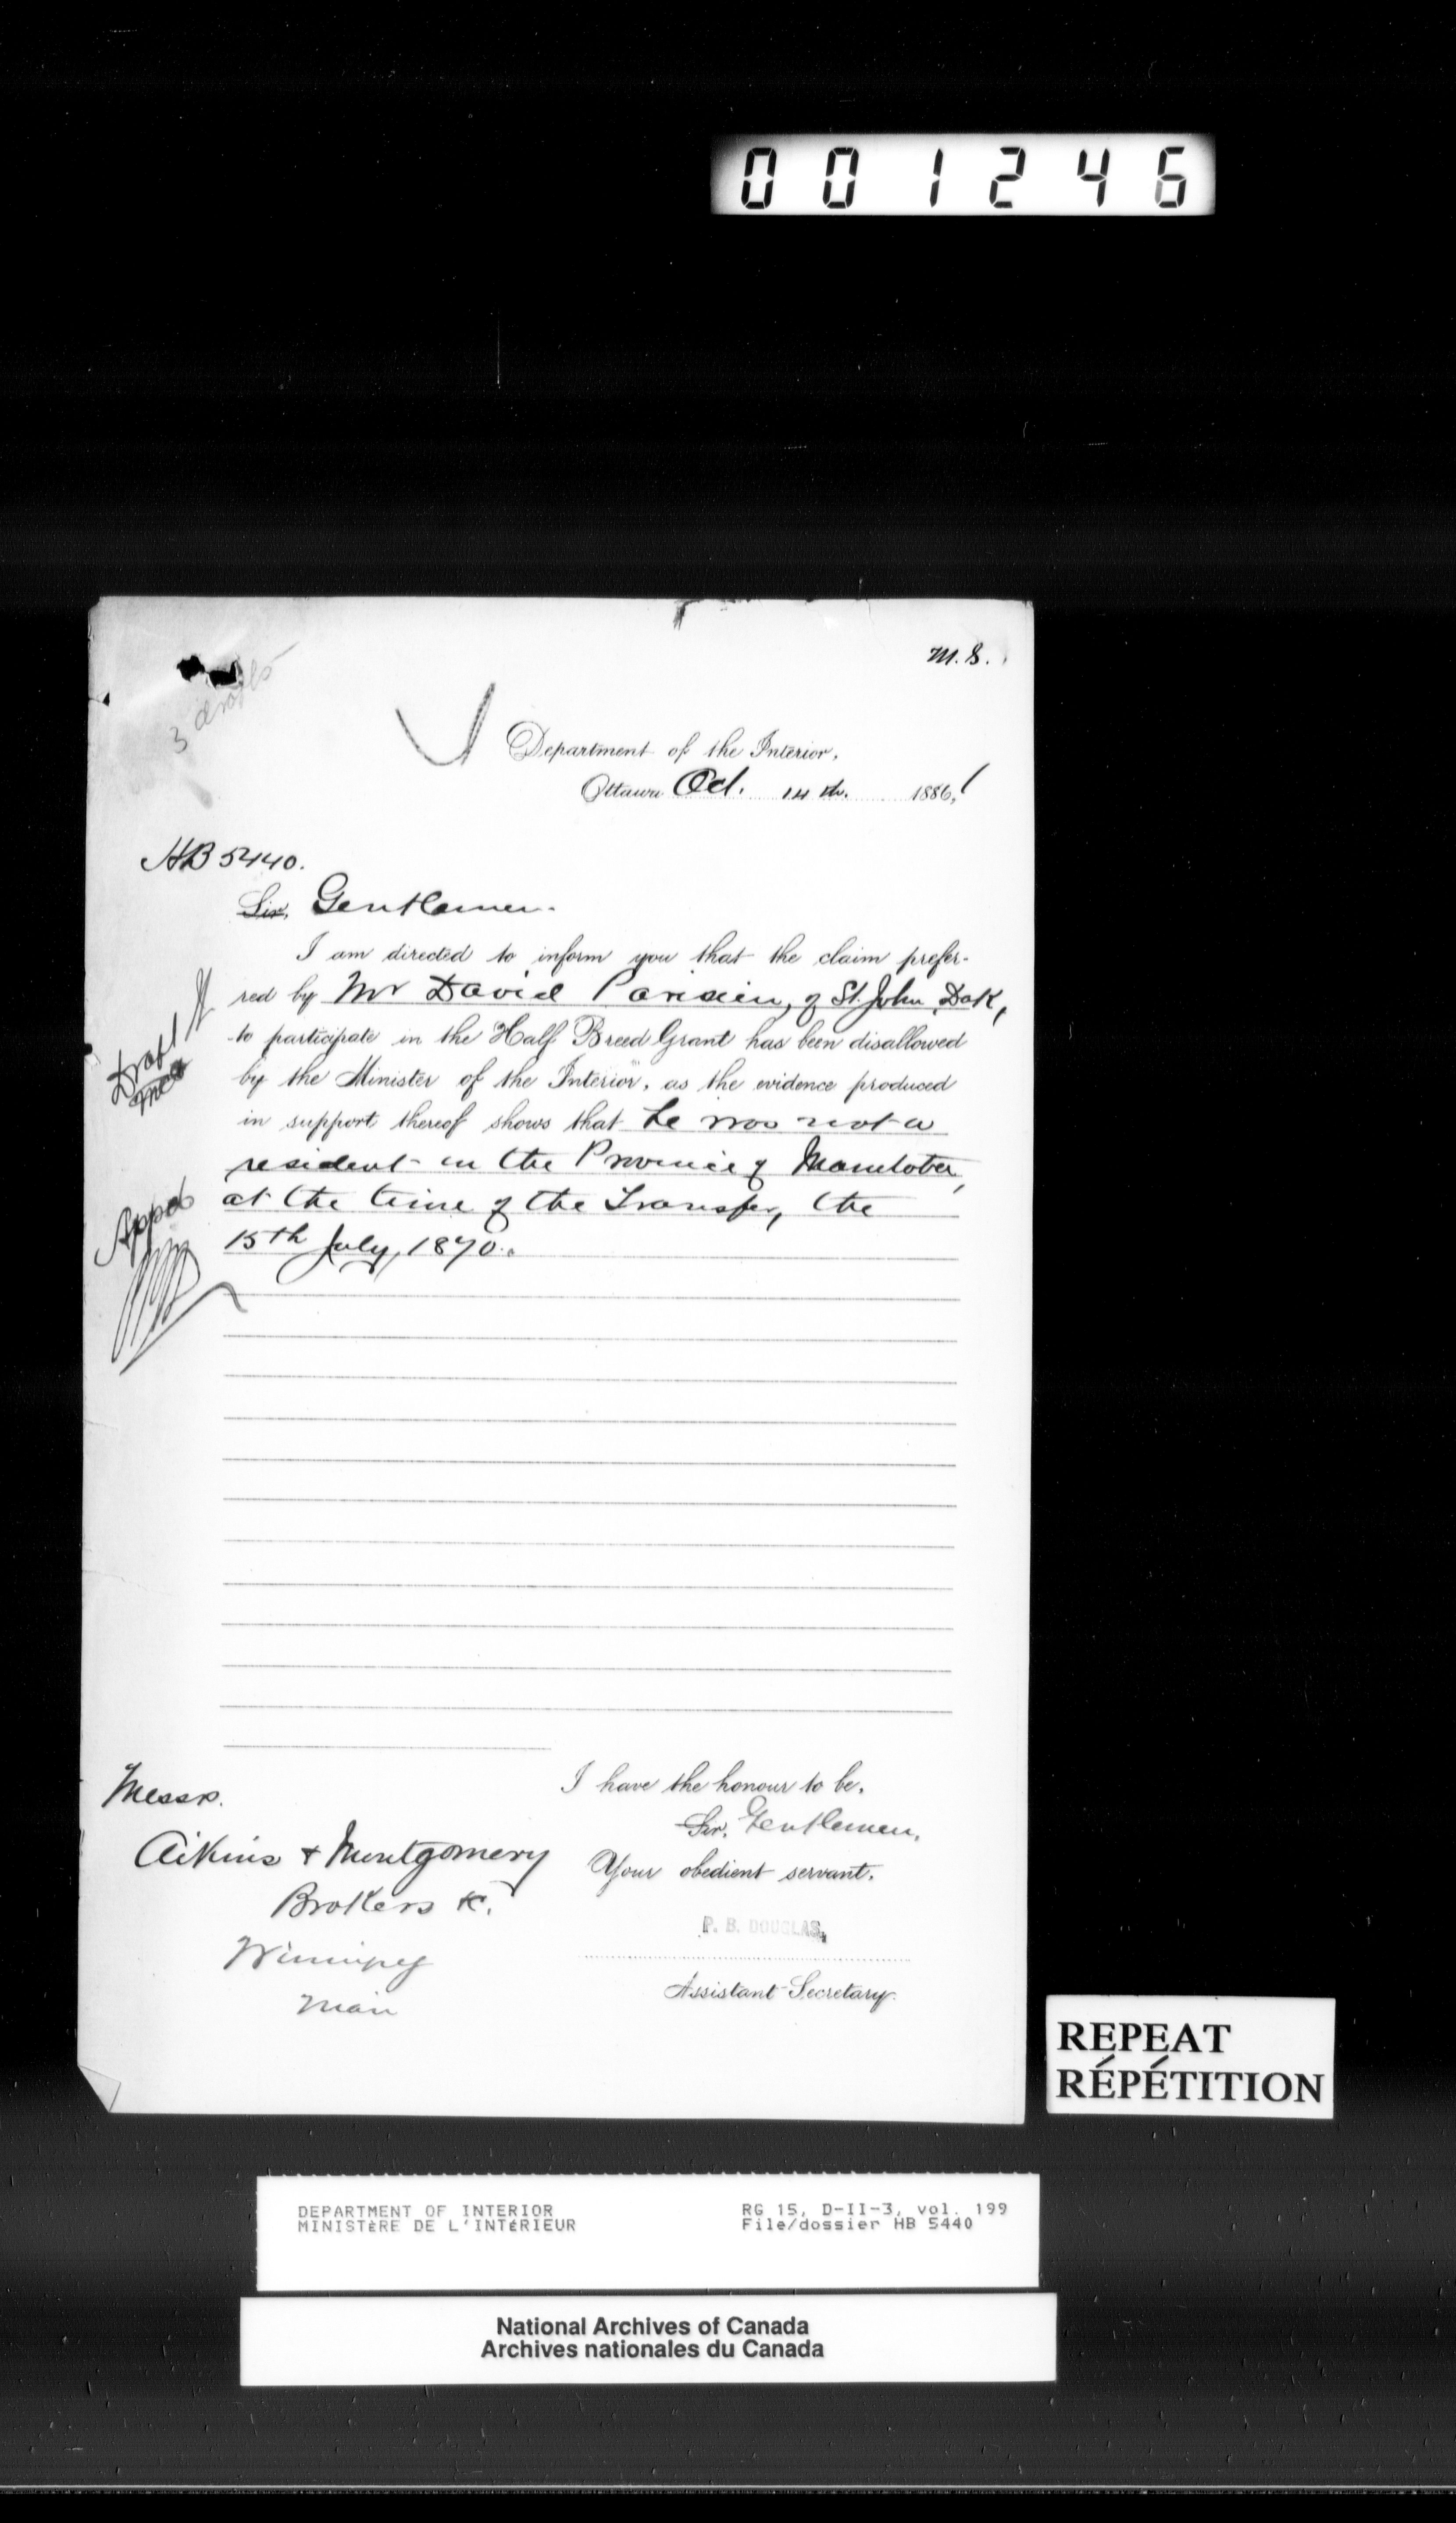 001246
M.S.
3 drafts
Department of the Interior,
Ottawa Oct. 14th. 1886,
HB 5440.
Sir, Gentlemen.
I am directed to inform you that the claim prefer-
red by Mr David Parisien, of St. John, Dak,
to participate in the Half Breed Grant has been disallowed
by the Minister of the Interior, as the evidence produced
in support thereof shows that he was not a
resident in the Province of Manitoba,
at the time of the Transfer, the
15th July, 1870.
Draft
Appd
I have the honour to be,
Sir, Gentlemen,
Your obedient servant,
P. B. DOUGLAS,
Assistant Secretary.
Messrs.
Aikins & Montgomery
Brokers &c.
Winnipeg
Man
REPEAT
RÉPÉTITION
DEPARTMENT OF INTERIOR RG 15, D-II-3, vol. 199
MINISTÈRE DE L'INTÉRIEUR File/dossier HB 5440
National Archives of Canada
Archives nationales du Canada